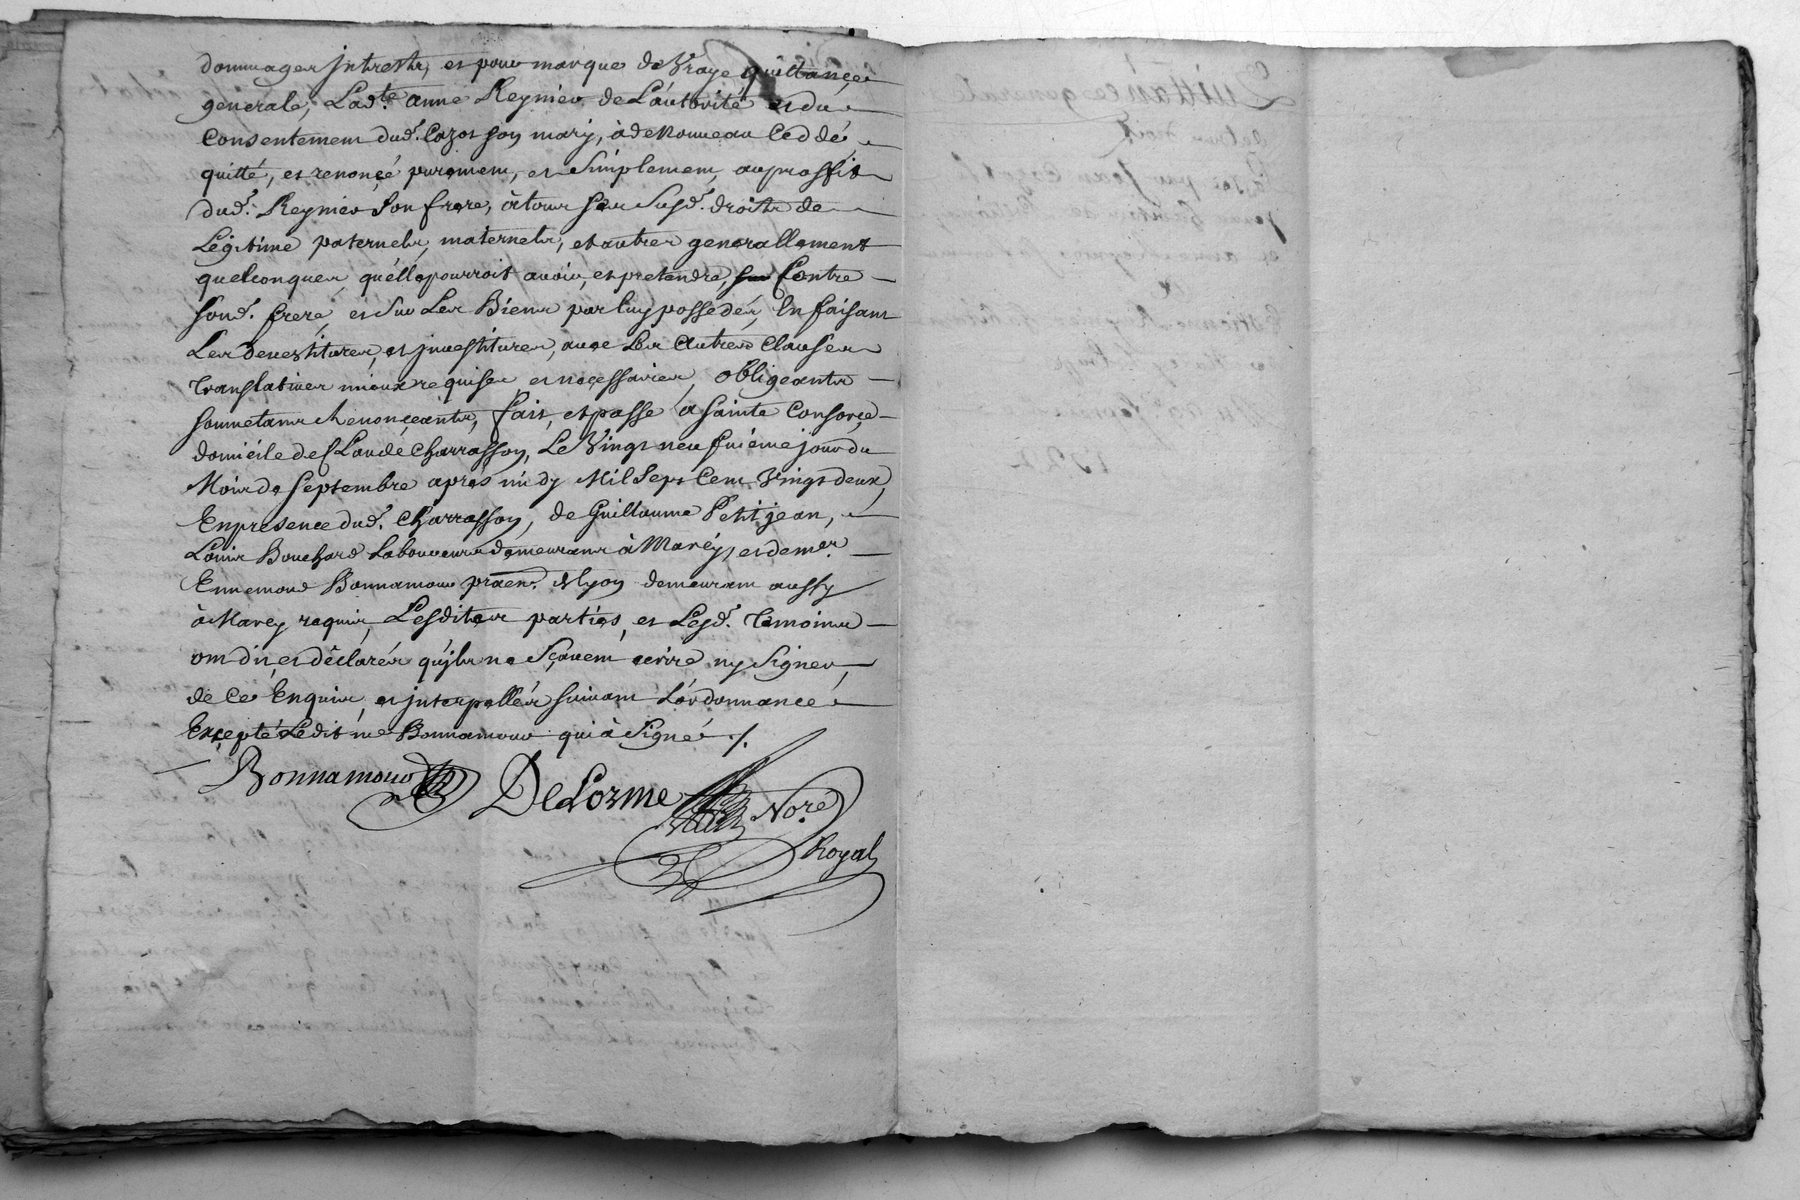 dommages jntrests, et pour marque de Vraye quittance
generale, Lad.te anne Reynier de L'autorité et du
Consentement dud. Cazot son mary, à de Nouveau Ceddé,
quitté, et renoncé purement, et Simplement, au proffit
dud. Reynier Son frere, à tous Ses Susd. droits de
Légitime paternels, maternels, et autres generallement
quelconques, qu'elle pourroit avoir, et pretendre, Contre
sond. frere, et Sur Les Biens par luy possedés, En faisant
Les devestitures, et jnvestitures, avec Les Autres Clauses
translatives mieux requises, et necessaires, obligeants
soumetants Renonçeants, fait, et passé à Sainte Consorce
domicile de Claude Charrasson, Le Vingt neufuième jour du
Mois de Septembre après midy Mil Sept Cent Vingt deux,
En presence dud. Charrasson, de Guillaume Petitjean,
Louis Bouchard Laboureurs demeurants à Marcy, et de m.er
Ennemond Bonnamour praen. à Lyon demeurant aussy
à Marcy requis, Lesdites parties, et Lesd. temoins
ont dit, et déclarés qu'jls ne Sçavent écrire, ny Signer,
de Ce Enquis, et jnterpellés suivant L'ordonnance
Excepté Ledit me Bonnamour qui à Signé ./.
Bonnamour DeLorme No.re
Royal
Quittance general
1722